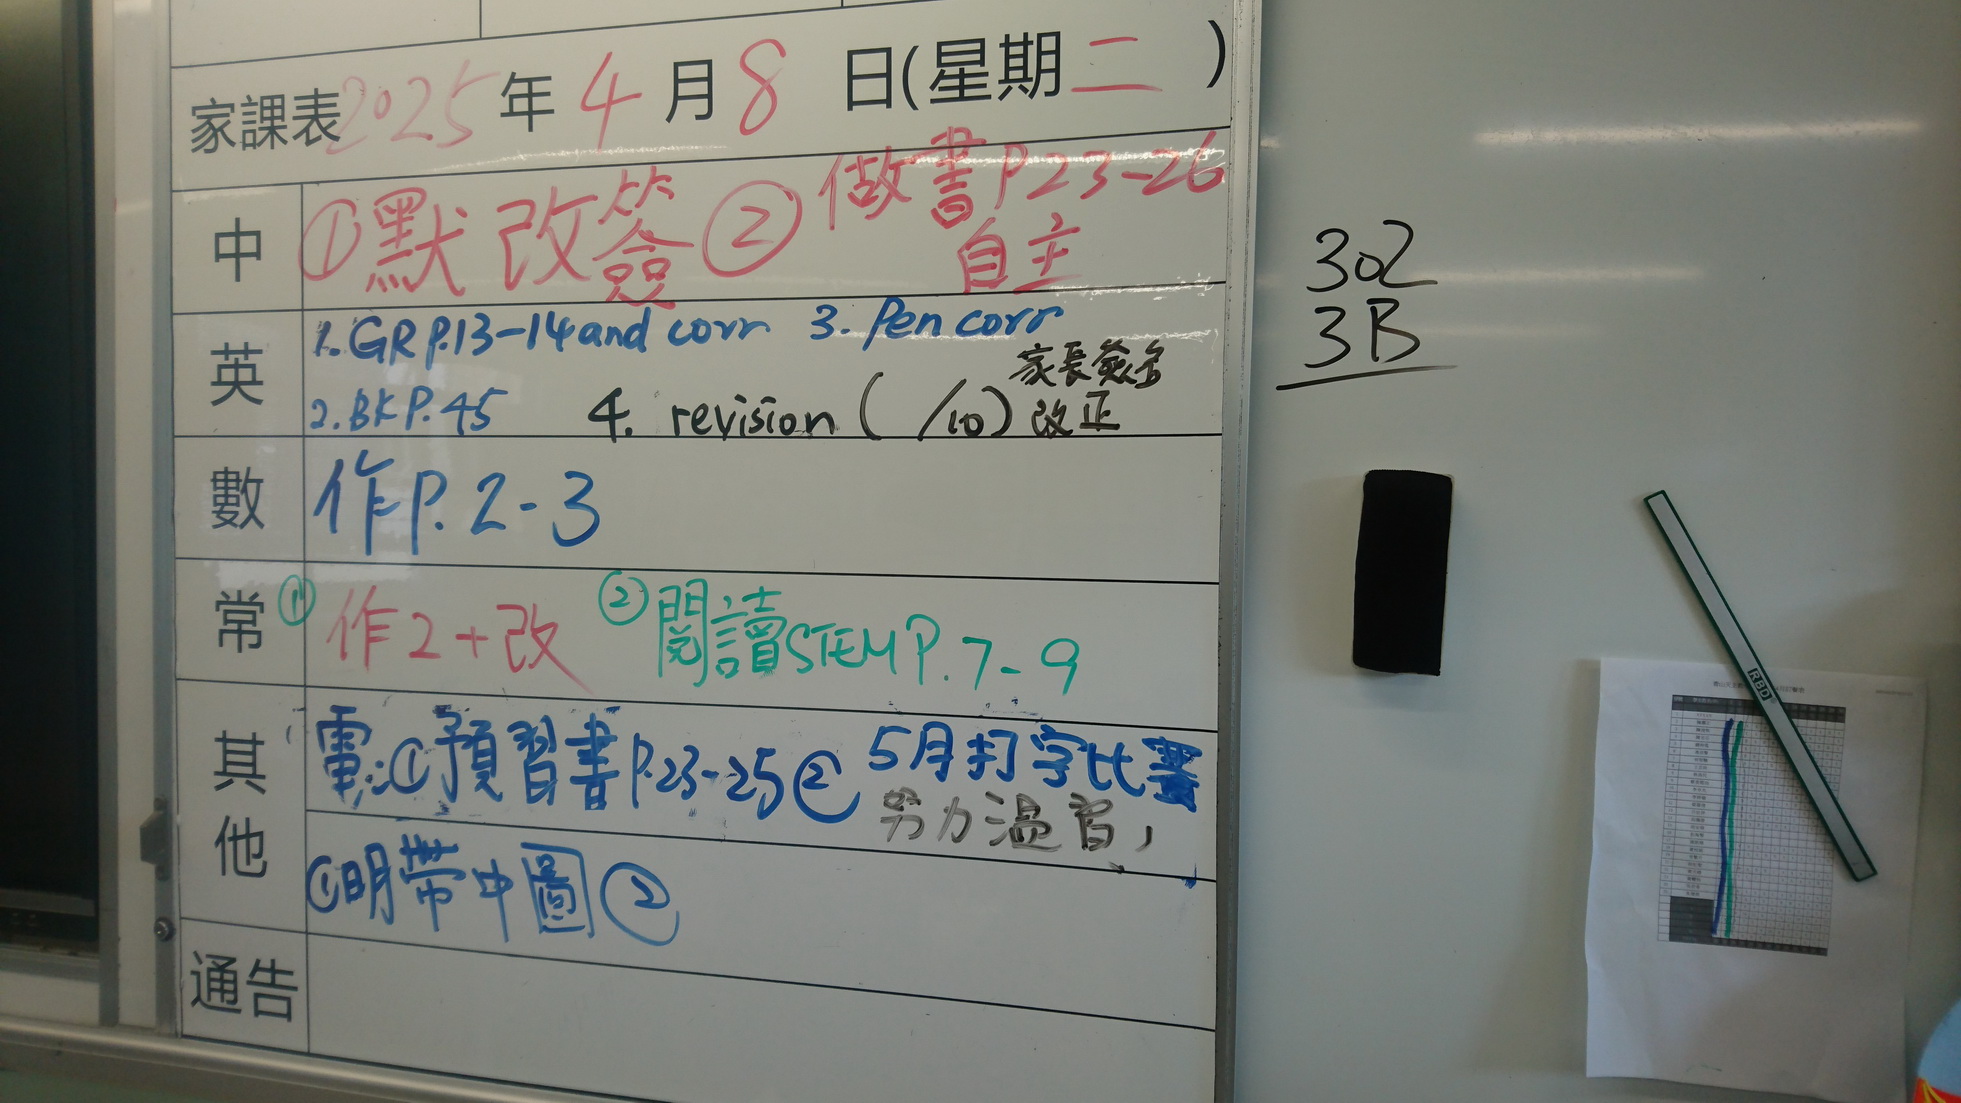 家課表2025年4月8日(星期二)
中
①默改簽②做書P23-26
自主
英
1.GR P.13-14 and corr 3. Pen corr
2.BK P.45 4. revision ( /10) 家長簽名
改正
數
作P.2-3
常
①作2+改 ②閱讀STEM P.7-9
其他
電:①預習書P.23-25②5月打字比賽
努力溫習,
①明帶中圖②
通告
302
3B
RBD